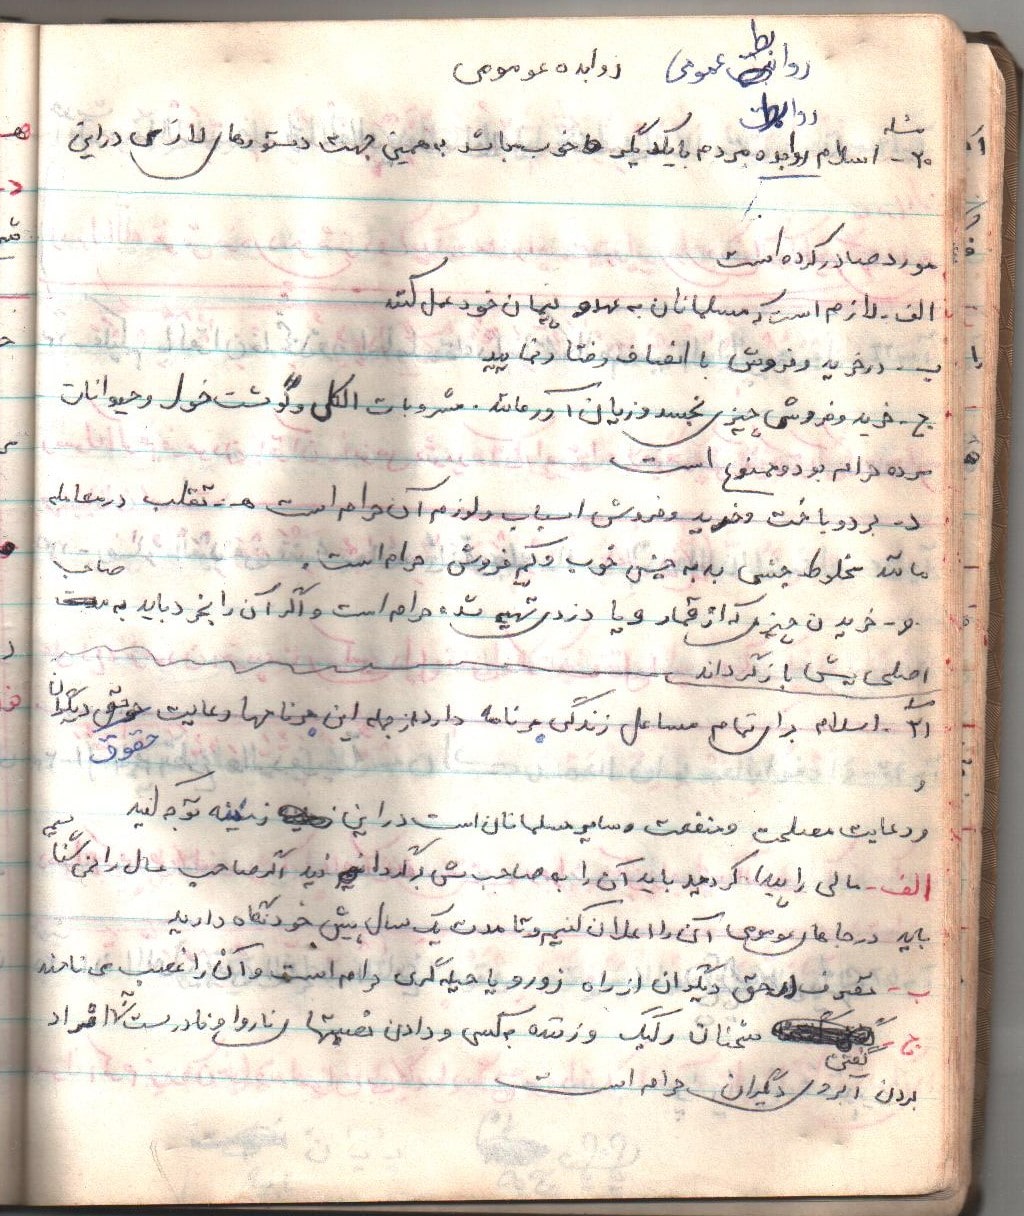 روابط عمومی زوابده عو مومی
روابط
مسئله
۲۰- اسلام روابده مردم با یکدیگر ها خوب میاشد به همینی جهت دستورهای لازمی در این
مورد صادر کرده است
الف- لازم است که مسلمانان به عهد و پیمان خود عمل کنند
ب- در خرید و فروش با انصاف رفتار نمایید
ج- خرید و فروشی چیزی نجسد و زیان آور مانند. مشروبات الکلی و گوشت خول و حیوانات
مرده حرام بود و ممنوع است
د- بردوباخت و خرید و فروش اسباب و لوزم آن حرام است ه- تقلب در معامله
مانند مخلوط جنسی بد به جنس خوب و کم فروش حرام است.
صاحب
و- خریدن چیزی که از قمار و یا دزدی تهیه شده حرام است و اگر آن را بخرد باید به
اصلی یش باز گرداند
۲۱- اسلام برای تمام مساعل زندگی برنامه دارد از جمله این برنامها رعایت حقوق دیگران
حقوق
و
و رعایت مصلحت و منفعت و سایر مسلمانان است در این زمینه توجه کنید
الف- مالی را پیدا کردید باید آن را به صاحب ش برگردانید اگر صاحب مال را نمی شناسیم
باید در جاهای عومومی آن را اعلان کنیم و تا مدت یک سال پیش خود نگاه دارید
ب- تصرف در حق دیگران از راه زور و یا حیله گری حرام است و آن را غصب می نامند
ج- گفتن سخنان رکیک و زننده به کسی و دادن نصبتها ی ناروا و نادرست از
بردن آبروی دیگران حرام است